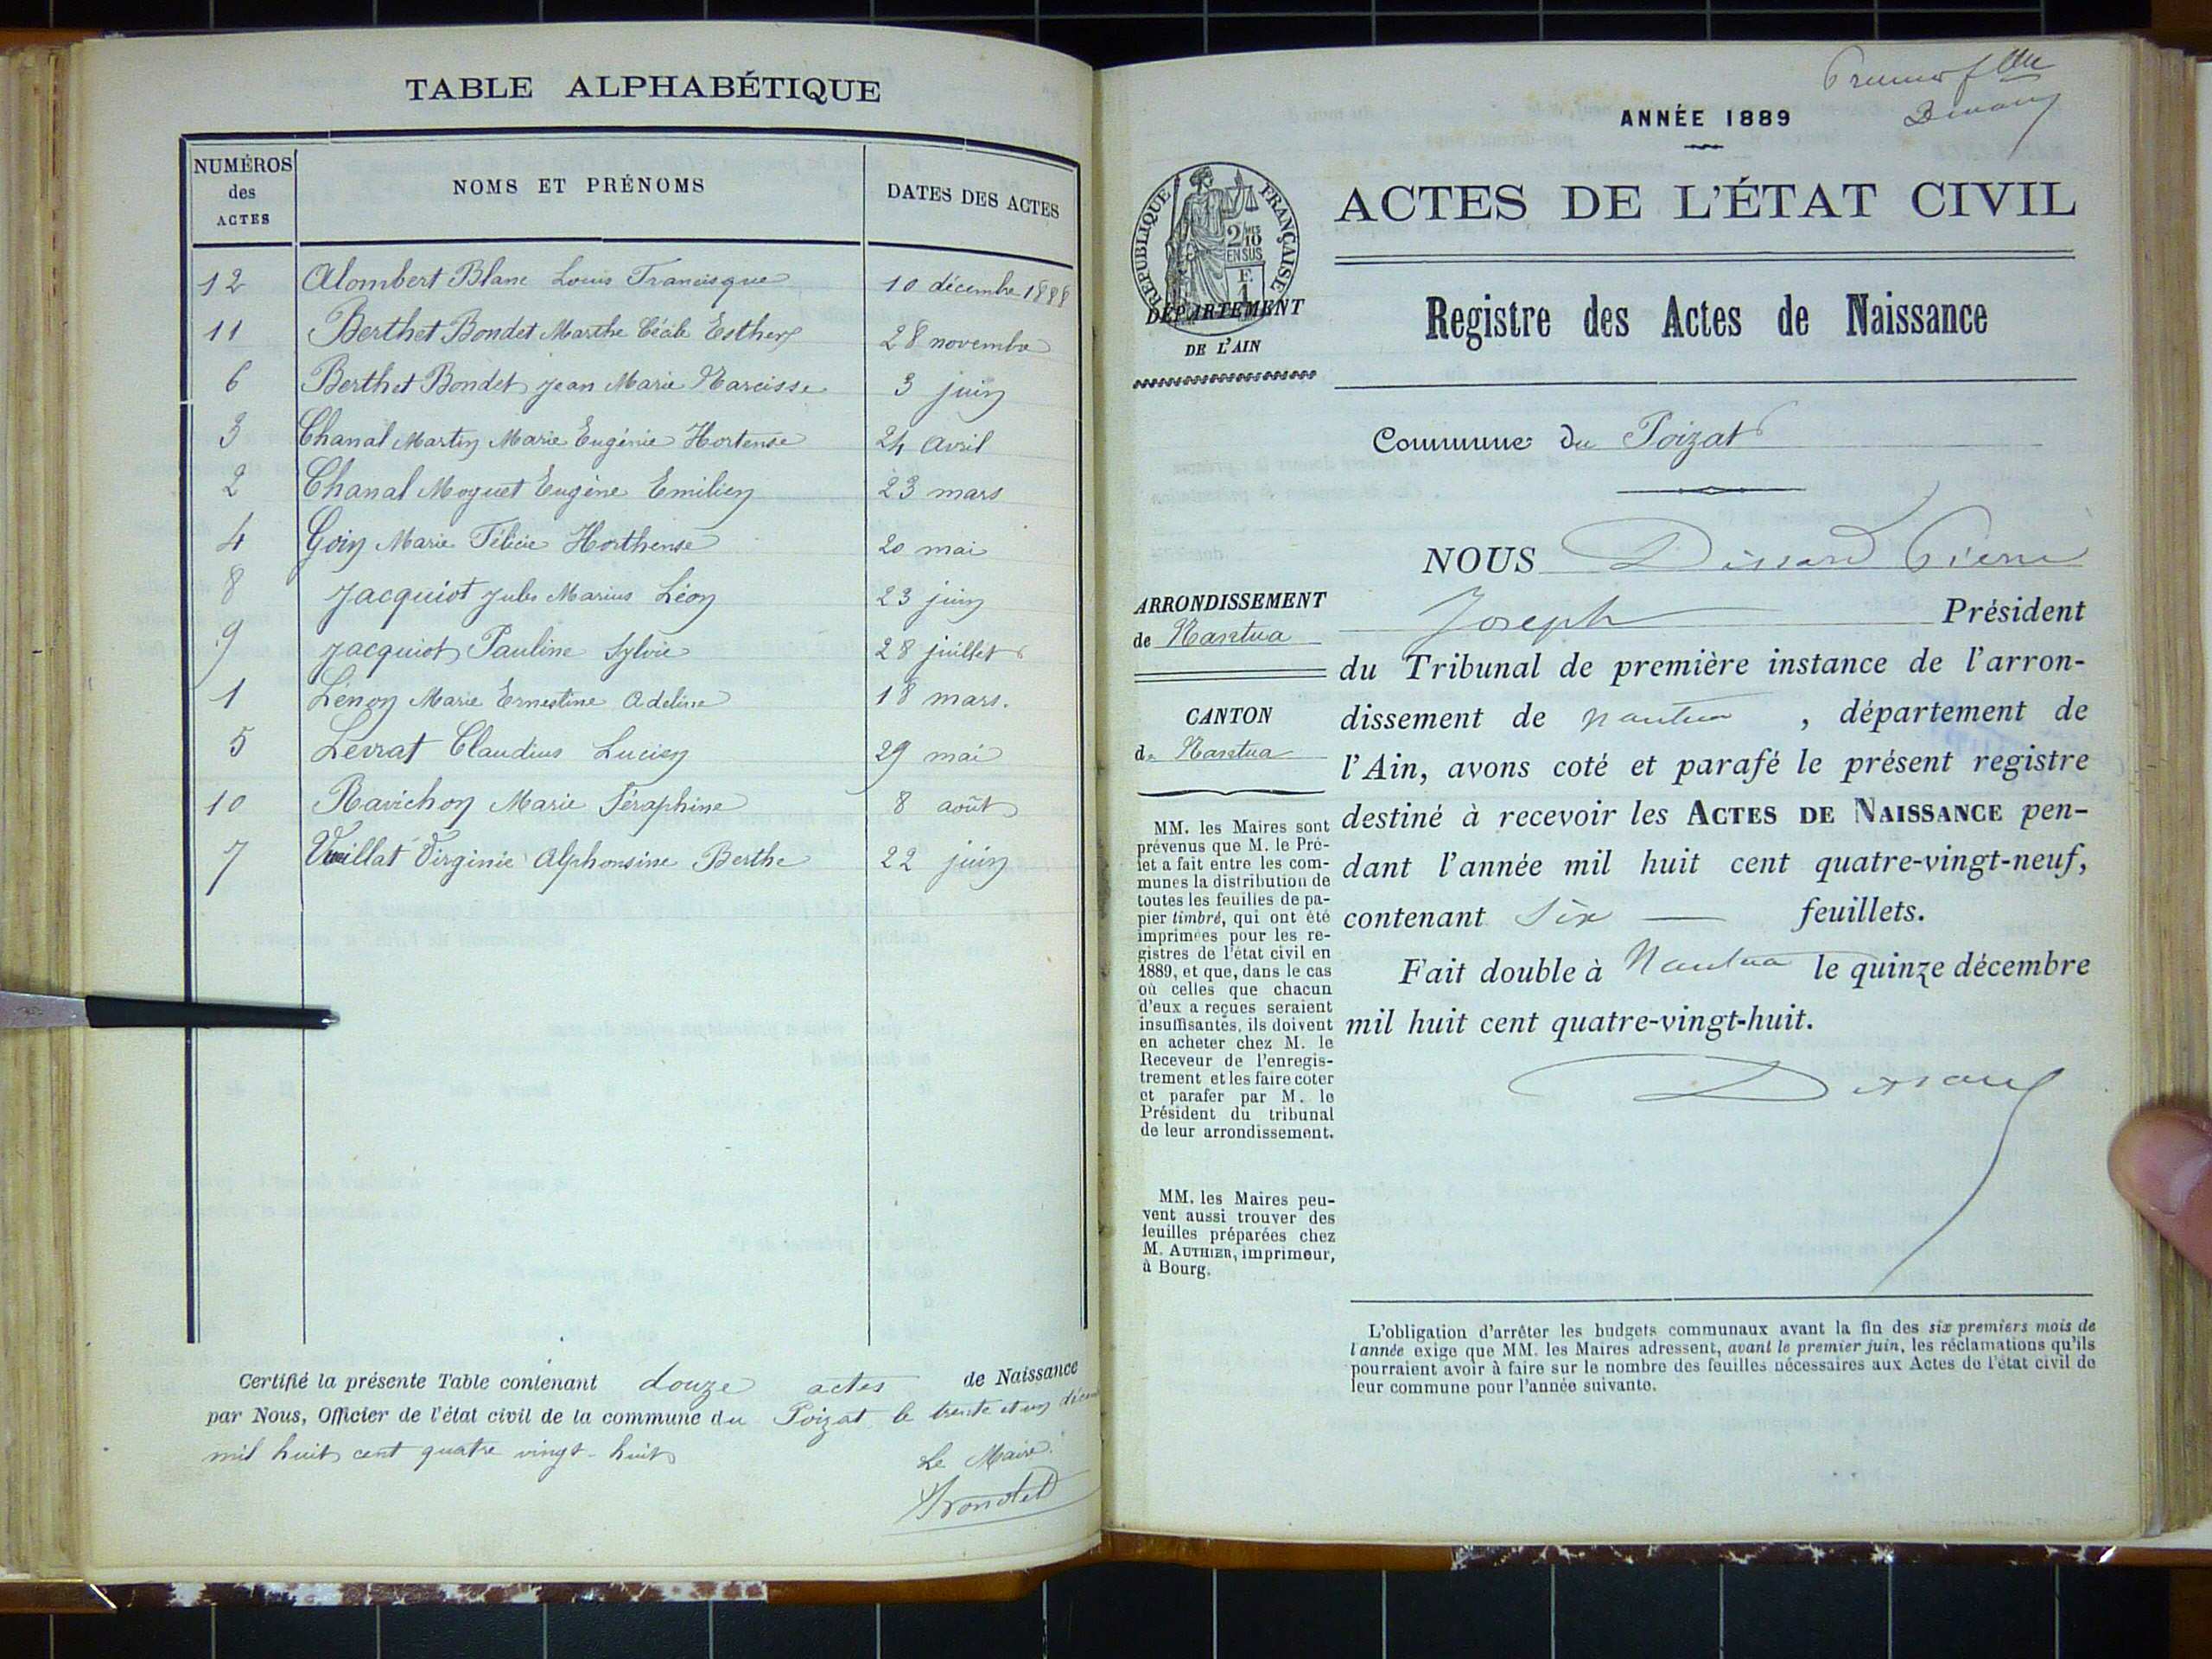 TABLE ALPHABÉTIQUE
NUMÉROS des ACTES
NOMS ET PRÉNOMS
DATES DES ACTES
12 Alombert Blanc Louis Francisque 10 décembre 1888
11 Berthet Bondet Marthe Cécile Esther 28 novembre
6 Berthet Bondet Jean Marie Narcisse 3 juin
3 Chanal Martin Marie Eugénie Hortense 24 avril
2 Chanal Moguet Eugène Emilien 23 mars
4 Goin Marie Félicie Horthense 20 mai
8 Jacquiot Jules Marius Léon 23 juin
9 Jacquiot Pauline Sylvie 28 juillet
1 Lenoy Marie Ernestine Adeline 18 mars.
5 Levrat Claudius Lucien 29 mai
10 Ravichon Marie Séraphine 8 août
7 Vuillat Virginie Alphonsine Berthe 22 juin
Certifié la présente Table contenant douze actes de Naissance
par Nous, Officier de l'état civil de la commune du Poizat le trente et un décem
mil huit cent quatre vingt-huit
Le Maire
ANNÉE 1889
RÉPUBLIQUE FRANÇAISE
2/10 EN SUS
F. 1
ACTES DE L'ÉTAT CIVIL
DÉPARTEMENT
DE L'AIN
Registre des Actes de Naissance
Commune du Poizat
ARRONDISSEMENT
de Nantua
CANTON
de Nantua
MM. les Maires sont
prévenus que M. le Pré-
fet a fait entre les com-
munes la distribution de
toutes les feuilles de pa-
pier timbré, qui ont été
imprimées pour les re-
gistres de l'état civil en
1889, et que, dans le cas
où celles que chacun
d'eux a reçues seraient
insuffisantes, ils doivent
en acheter chez M. le
Receveur de l'enregis-
trement et les faire coter
et parafer par M. le
Président du tribunal
de leur arrondissement.
MM. les Maires peu-
vent aussi trouver des
feuilles préparées chez
M. AUTHIER, imprimeur,
à Bourg.
NOUS Dissard Pierre
Joseph Président
du Tribunal de première instance de l'arron-
dissement de nantua , département de
l'Ain, avons coté et parafé le présent registre
destiné à recevoir les ACTES DE NAISSANCE pen-
dant l'année mil huit cent quatre-vingt-neuf,
contenant Six feuillets.
Fait double à Nantua le quinze décembre
mil huit cent quatre-vingt-huit.
Dissard
L'obligation d'arrêter les budgets communaux avant la fin des six premiers mois de
l'année exige que MM. les Maires adressent, avant le premier juin, les réclamations qu'ils
pourraient avoir à faire sur le nombre des feuilles nécessaires aux Actes de l'état civil de
leur commune pour l'année suivante.